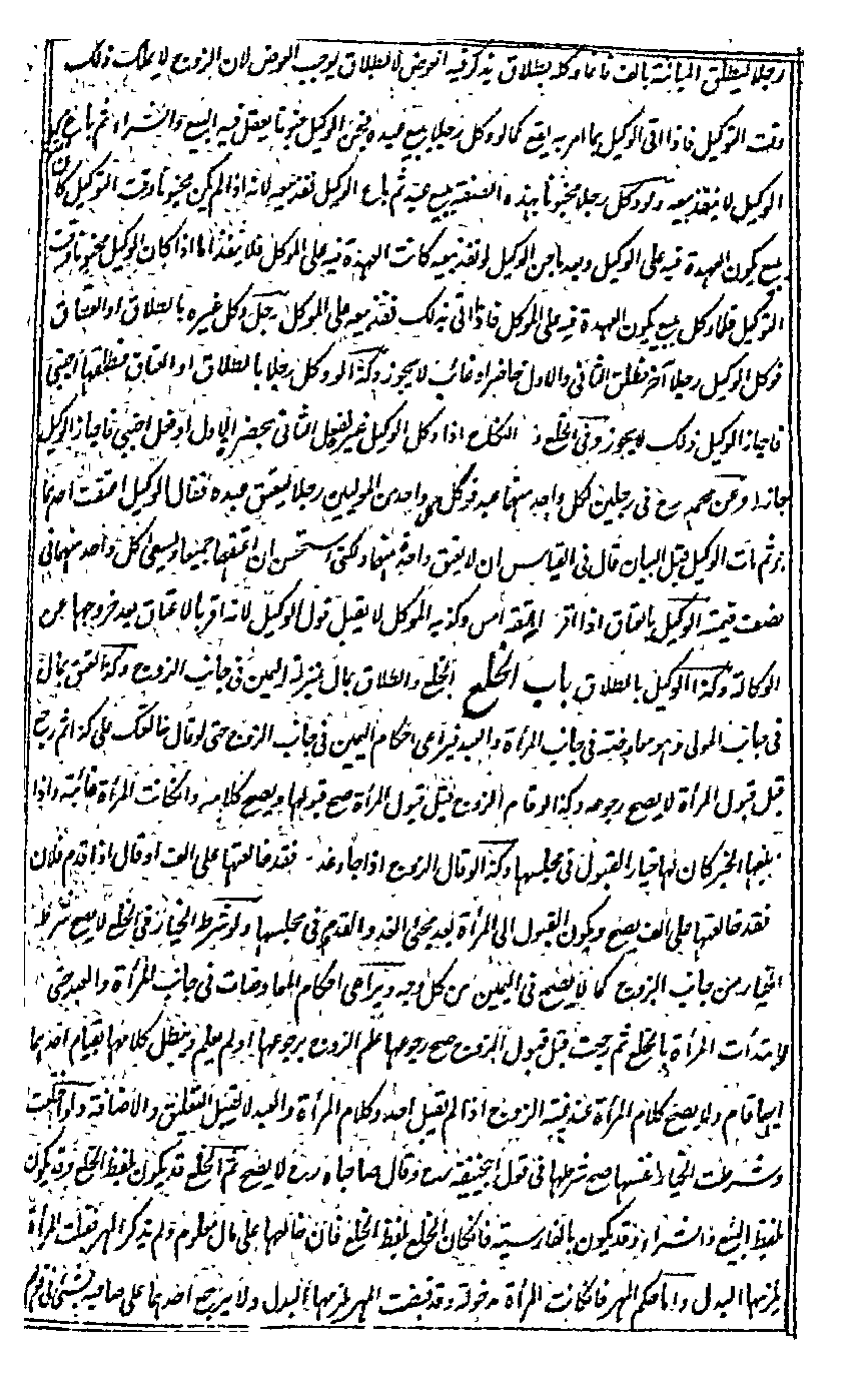 رجلا ليطلق المبانة بالف فانما وكله بطلاق يذكر فيه العوض لا بطلاق يوجب العوض لان الزوج لا يملك ذلك
وقت التوكيل فاذا اتى الوكيل بما امر به يقع كما لو وكل رجلا ببيع عبده فجن الوكيل جنونا يعقل فيه البيع والشراء ثم باع
الوكيل لا ينفذ بيعه ولو وكل رجلا مجنونا بهذه الصفة ببيع عبده ثم باع الوكيل نفذ بيعه لانه اذا لم يكن مجنونا وقت التوكيل كان
ببيع يكون العهدة فيه على الوكيل وبعد ما جن الوكيل لو نفذ بيعه كانت العهدة فيه على الموكل فلا ينفذ اما اذا كان الوكيل مجنونا وقت
التوكيل فانما وكل ببيع يكون العهدة فيه على الموكل فاذا اتى بذلك نفذ بيعه على الموكل رجل وكل غيره بالطلاق او العتاق
فوكل الوكيل رجلا آخر فطلق الثاني والاول حاضر او غائب لا يجوز وكذا لو وكل رجلا بالطلاق او العتاق فطلقها اجنبي
فاجاز الوكيل ذلك لا يجوز وفي الخلع و النكاح اذا وكل الوكيل غيره ففعل الثاني بحضرة الاول او فعل اجنبي فاجاز الوكيل
جاز وعن محمد رح في رجلين لكل واحد منهما عبد فوكل واحد من الموليين رجلا ليعتق عبده فقال الوكيل اعتقت احدهما
ثم مات الوكيل قبل البيان قال في القياس ان لا يعتق واحد منهما ولكني استحسن ان اعتقهما جميعا ويسعى كل واحد منهما في
نصف قيمته الوكيل بالعتاق اذا اقر انه اعتقه امس وكذبه الموكل لا يقبل قول الوكيل لانه اقر بالاعتاق بعد خروجها عن
الوكالة وكذا الوكيل بالطلاق باب الخلع الخلع والطلاق بمال بمنزلة اليمين في جانب الزوج وكذا العتق بمال
في جانب المولى وهو معاوضة في جانب المرأة والعبد فيراعى احكام اليمين في جانب الزوج حتى لو قال خالعتك على كذا ثم رجع
قبل قبول المرأة لا يصح رجوعه وكذا لو قام الزوج قبل قبول المرأة صح قبولها ويصح كلامه وان كانت المرأة غائبة واذا
بلغها الخبر كان لها خيار القبول في مجلسها وكذا لو قال الزوج اذا جاء غد فقد خالعتها على الف او قال اذا قدم فلان
فقد خالعتها على الف يصح ويكون القبول الى المرأة بعد مجيء الغد والقدوم في مجلسها ولو شرط الخيار في الخلع لا يصح شرط
الخيار من جانب الزوج كما لا يصح في اليمين من كل وجه ويراعى احكام المعاوضات في جانب المرأة والعبد حتى
لو بدأت المرأة بالخلع ثم رجعت قبل قبول الزوج صح رجوعها علم الزوج برجوعها او لم يعلم ويبطل كلامها بقيام احدهما
ايهما قام ولا يصح كلام المرأة عند غيبة الزوج اذا لم يقبل احد وكلام المرأة والعبد لا يقبل التعليق والاضافة ولو اختلعت
وشرطت الخيار لنفسها صح شرطها في قول ابي حنيفة رح وقال صاحباه رح لا يصح ثم الخلع قد يكون بلفظ الخلع وقد يكون
بلفظ البيع والشراء وقد يكون بالفارسية فان كان الخلع بلفظ الخلع فان خالعها على مال معلوم ولم يذكر المهر فقبلت المرأة
يلزمها البدل واما حكم المهر فان كانت المرأة مدخولة وقد قبضت المهر لزمها البدل ولا يرجع احدهما على صاحبه بشيء في قولهم